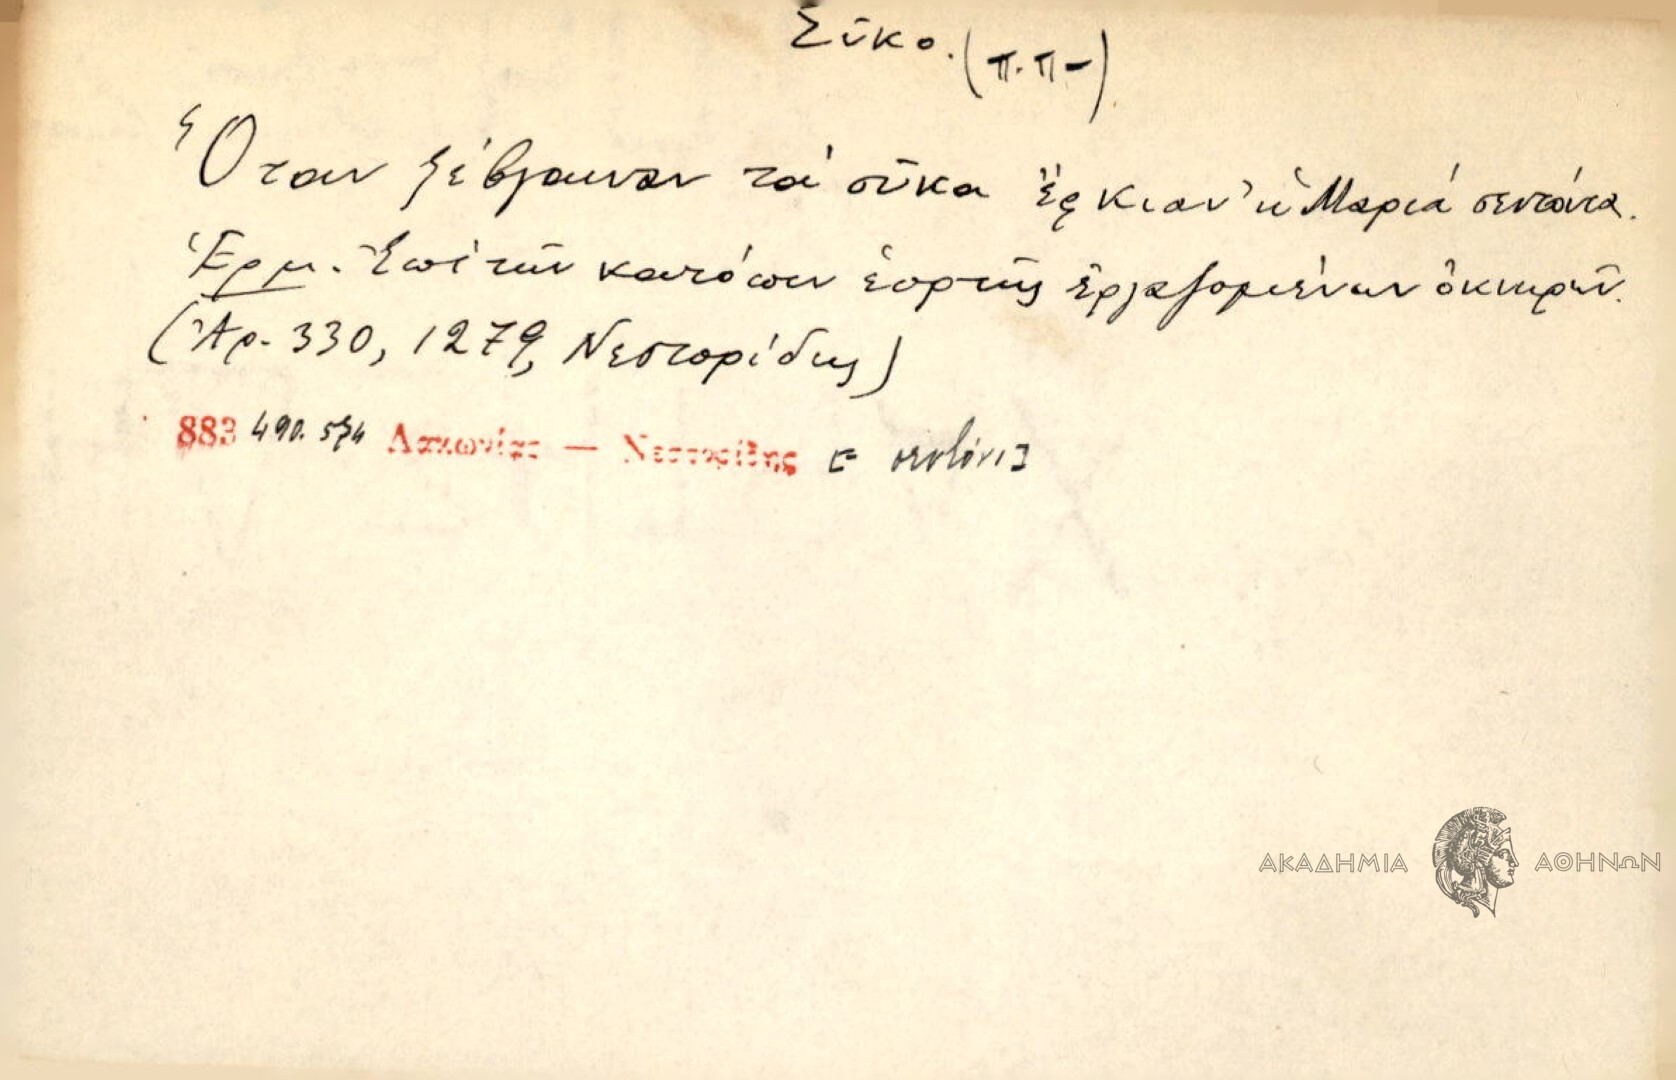 Σῦκο. (π.π-)
Ὅταν ξέβγαιναν τὰ σῦκα ἔφκιαν' ἡ Μαριὰ σεντόνια.
Ἑρμ. Ἐπὶ τῶν κατόπιν ἑορτῆς ἐργαζομένων ὀκνηρῶν.
(Ἀρ. 330, 1279, Νεστορίδης)
883 490. 574 Λακωνίας — Νεστορίδης [= σεντόνι]
ΑΚΑΔΗΜΙΑ ΑΘΗΝΩΝ